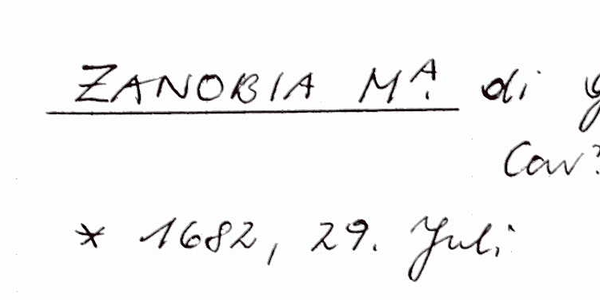 ZANOBIA Mᴬ. di
Cav
* 1682, 29. Juli